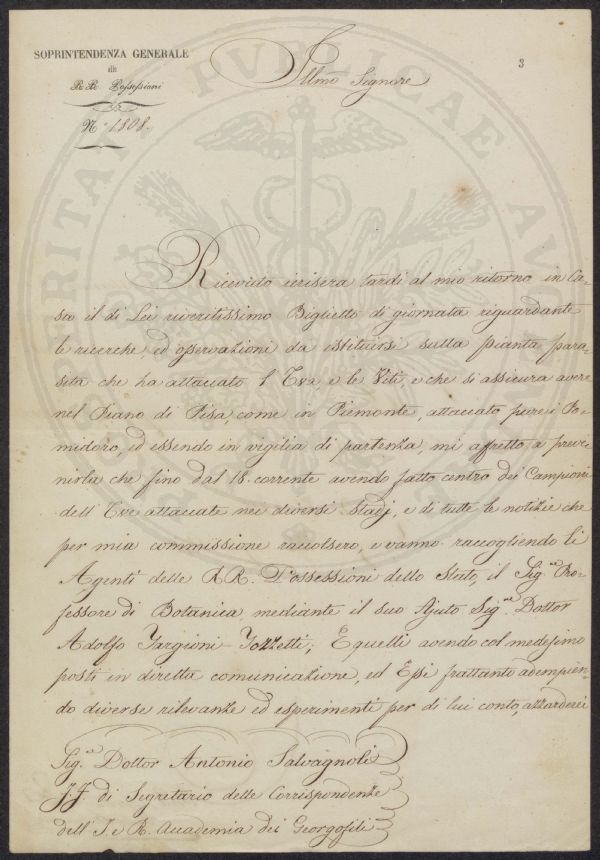 SOPRINTENDENZA GENERALE
di
RR. Possessioni
N.° 1808.
3
Illmo Signore
Ricevuto ierisera tardi al mio ritorno in Ca-
sa il di Lei riveritissimo Biglietto di giornata riguardante
le ricerche, ed osservazioni da istituirsi sulla pianta para-
sita che ha attaccato l'Uva e le Viti, e che si assicura avere
nel Piano di Pisa, come in Piemonte, attaccato pure i Po-
midoro, ed essendo in vigilia di partenza, mi affretto a preve-
nirla che fino dal 18. corrente avendo fatto centro dei Campioni
dell'Uve attaccate nei diversi Stadj, e di tutte le notizie che
per mia commissione raccolsero, e vanno raccogliendo li
Agenti delle RR. Possessioni dello Stato, il Sig.re Pro-
fessore di Botanica mediante il suo Ajuto Sig.re Dottor
Adolfo Targioni-Tozzetti; E quelli avendo col medesimo
posti in diretta comunicazione, ed Essi frattanto adempien-
do diverse rilevanze ed esperimenti per di lui conto, azzarderei
Sig.re Dottor Antonio Salvagnoli
ff. di Segretario delle Corrispondenze
dell'I. e R. Accademia dei Georgofili